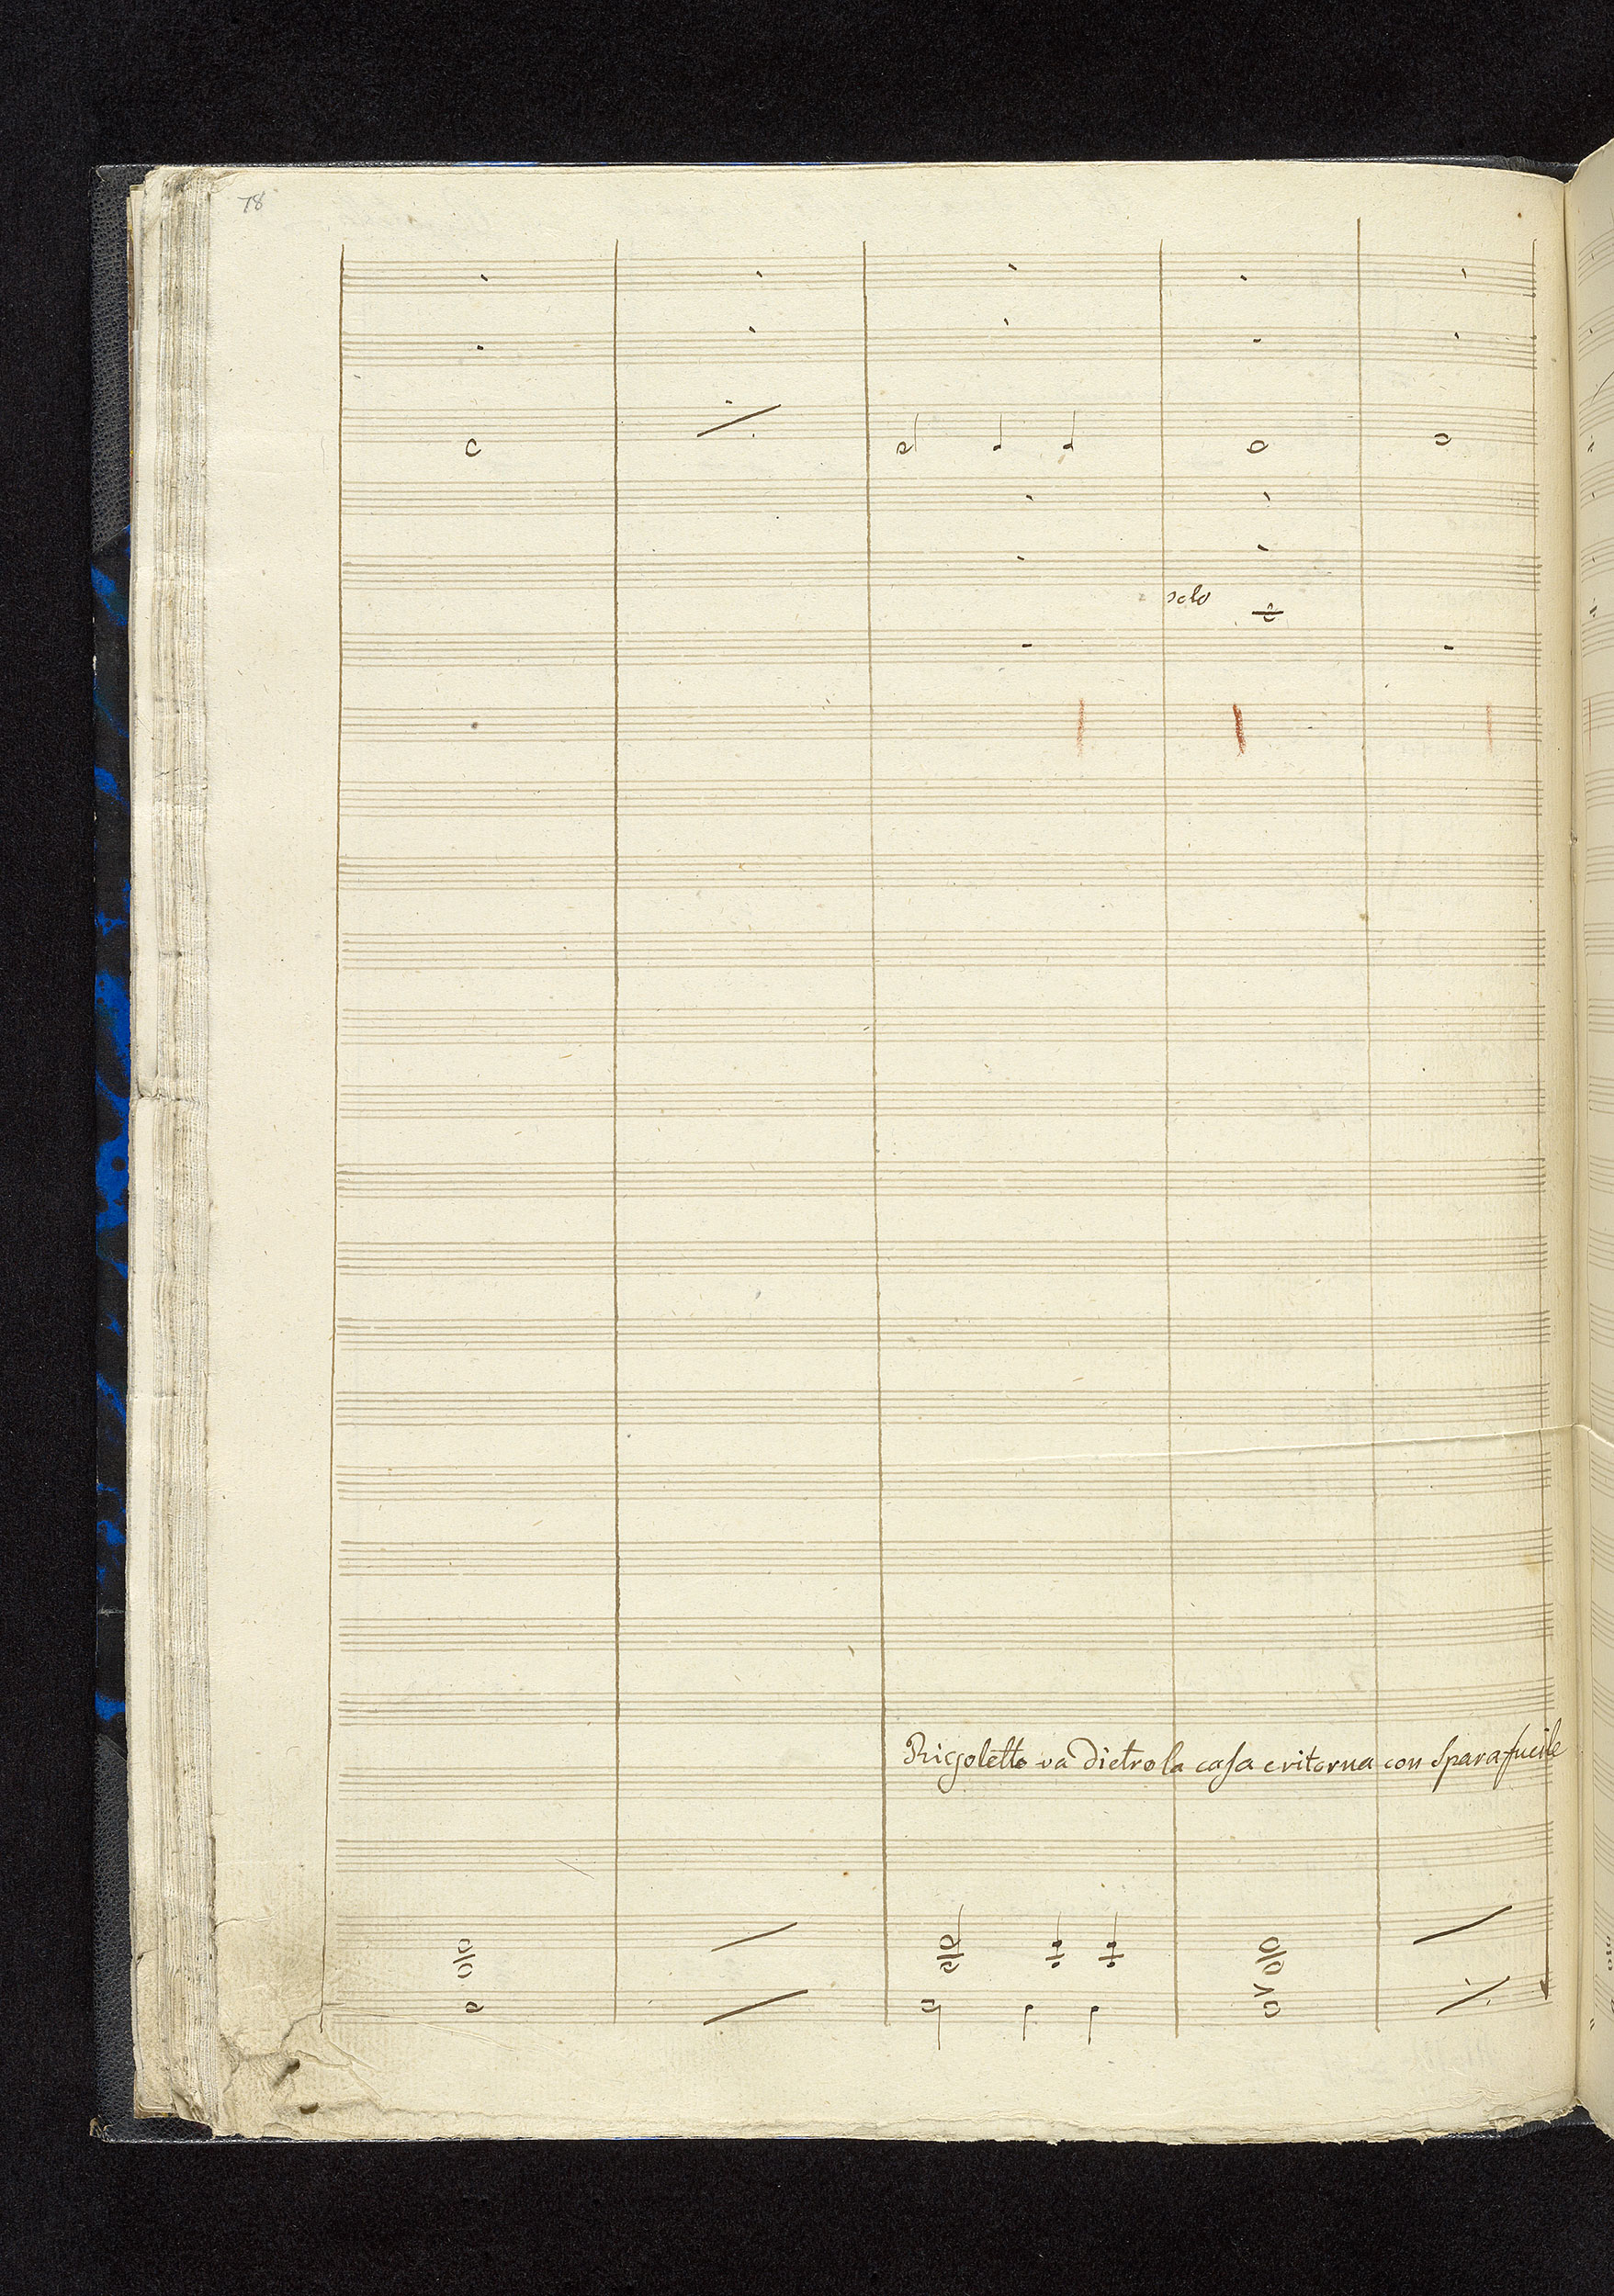 78
solo
Rigoletto va dietro la casa e ritorna con Sparafucile